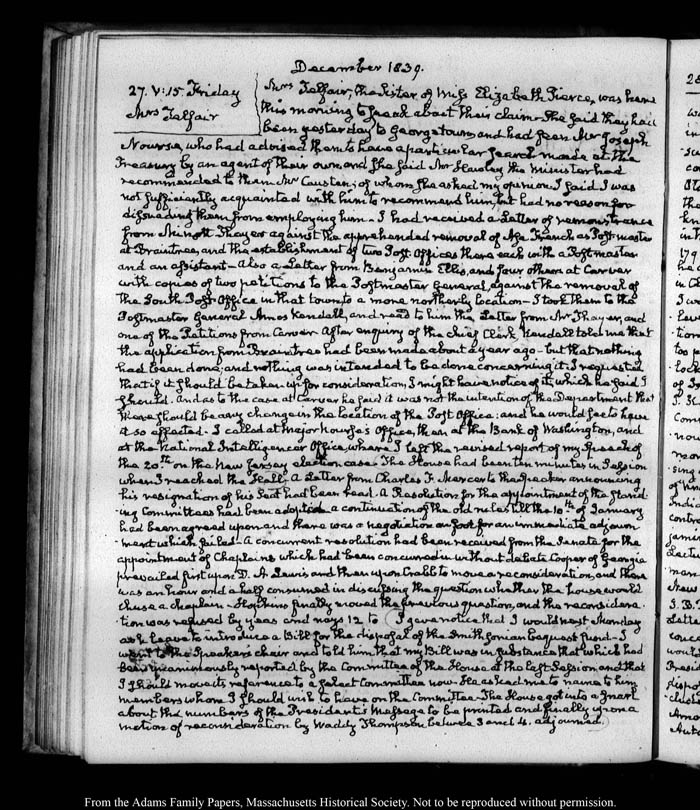 December 1839.
27. V:15. Friday
Mrs Telfair
Mrs Telfair, the Sister of Miss Elizabeth Pierce, was here
this morning to speak about their claim. She said they had
been yesterday to Georgetown, and had seen Mr Joseph
Nourse, who had advised them to have a particular search made at the
Treasury by an agent of their own, and she said Mr Hawley the minister had
recommended to them Mr Causten; of whom she asked my opinion. I said I was
not sufficiently acquainted with him to recommend him, but had no reason for
dissuading them from employing him. I had received a Letter of remonstrance
from Minott Thayer against the apprehended removal of Asa French as Postmaster
at Braintree, and the establishment of two Post Offices there each with a Postmaster
and an assistant. Also a Letter from Benjamin Ellis, and four others at Carver
with copies of two petitions to the Postmaster General, against the removal of
the South Post-Office in that town, to a more northerly location. I took them to the
Postmaster General Amos Kendall, and read to him the Letter from Mr Thayer, and
one of the Petitions from Carver. After enquiry of the chief Clerk, Kendall told me that
the application from Braintree had been made about a year ago. but that nothing
had been done; and nothing was intended to be done concerning it. I requested
that if it should be taken up for consideration, I might have notice of it, which he said I
should. And as to the case at Carver he said it was not the intention of the Department that
there should be any change in the location of the Post Office: and he would see to have
it so effected. I called at Major Nourse's Office, then at the Bank of Washington, and
at the National Intelligencer Office, where I left the revised report of my Speech of
the 20th. on the New Jersey election case. The House had been ten minutes in Session
when I reached the Hall. A Letter from Charles F. Mercer to the Speaker announcing
his resignation of his Seat had been read. A Resolution for the appointment of the stand-
ing Committees had been adopted. a continuation of the old rules till the 10th. of January
had been agreed upon and there was a negotiation on foot for an immediate adjourn-
ment which failed. A concurrent resolution had been received from the Senate for the
appointment of Chaplains which had been concurred in without debate Cooper of Georgia
prevailed first upon D. H. Lewis and then upon Crabb to move a reconsideration, and there
was an hour and a half consumed in discussing the question whether the house would
chuse a chaplain. Hopkins finally moved the previous question, and the reconsidera-
tion was refused by yeas and nays 12 to ( I gave notice that I would next Monday
ask leave to introduce a Bill for the disposal of the Smithsonian bequest fund. I
went to the Speaker's chair and told him that my Bill was in substance that which had
been unanimously reported by the Committee of the House at the last Session, and that
I should move its reference to a select Committee now. He asked me to name to him
members whom I should wish to have on the Committee. The House got into a snarl
about the numbers of the President's Message to be printed and finally upon a
motion of reconsideration by Waddy Thompson between 3 and 4. adjourned.
From the Adams Family Papers, Massachusetts Historical Society. Not to be reproduced without permission.